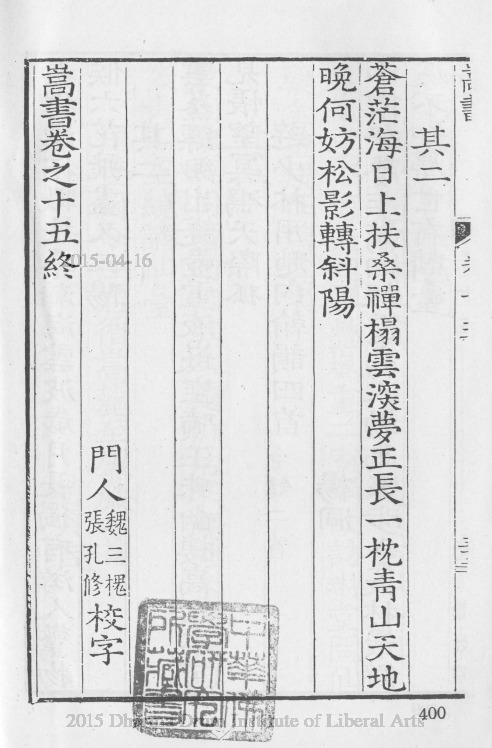 嵩書
其二
蒼茫海日上扶桑禪榻雲深夢正長一枕青山天地
晚何妨松影轉斜陽
嵩書卷之十五終
門人魏三槐張孔修校字
中華佛學研究所藏書
2015-04-16
400
2015 Dharma Drum Institute of Liberal Arts